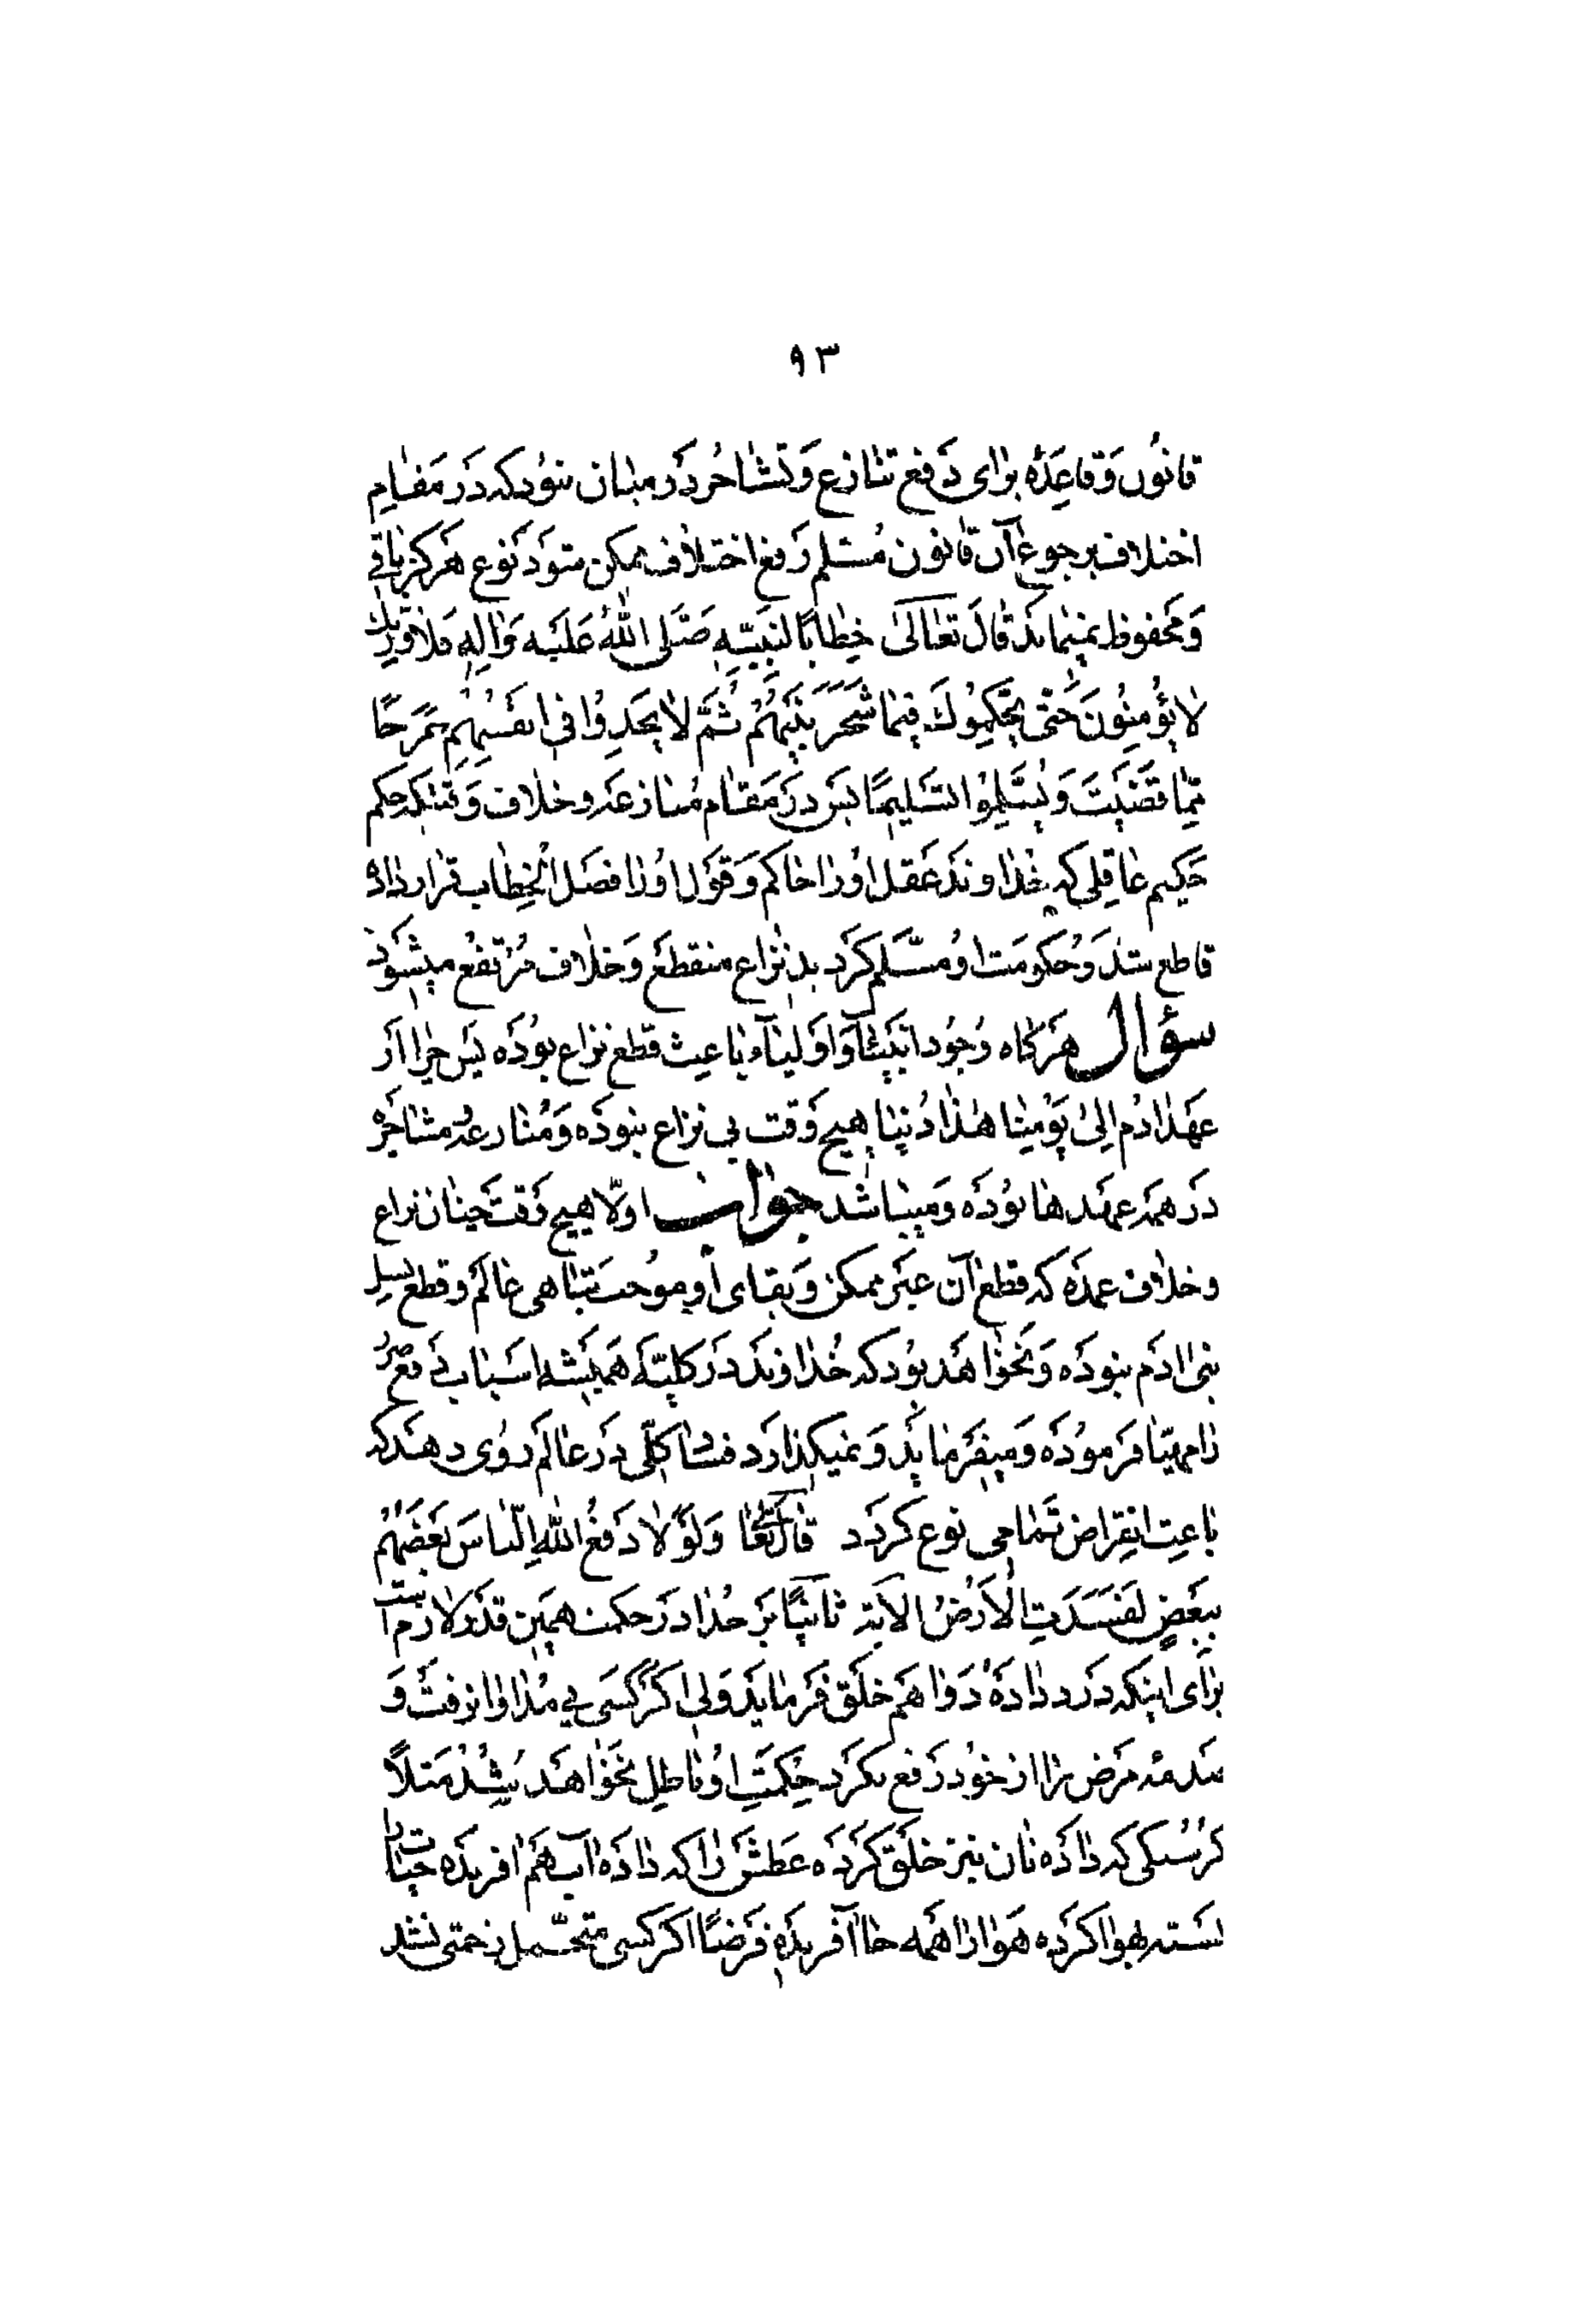 ۹۳
قانُون وَ قاعِدَهٔ برٰای دَفع تنٰازع وَ تشٰاجُر دَر میٰان نبوُد که دَر مَقٰامِ
اختلاف برجوع آن قانون مُسَلم رَفع اختلاف ممکن شوَد نَوع هَرکز باقی
وَ محَفوظ نمیمٰاند قٰالَ تعٰالیٰ خِطابًا لنبَیّهِ صَلَّی اللهُ عَلَیه وَ اٰلِهِ فَلا وَرَبِّكَ
لاٰ یُؤمِنُونَ حَتّی یُحَکِّمُوكَ فیمٰا شَجَرَ بَیْنَهُمْ ثُمَّ لاٰ یَجِدُوا فی اَنفُسِهِمْ حَرَجًا
مِّمّٰا قَضَیْتَ وَ یُسَلِّمُوا تَسْلیمًا پس در مَقٰام مُنازعه و خلاف وَقتیکه حکم
حَکیم عاقلی که خُداوند عَقل اوُ را حٰاکم وَ قَول اوُ را فصَل الْخِطٰاب قرار داده
قاطع شد وَ حُکومَت اوُ مُسَّلم کرَدید نِزاع منقطع وَ خلاف مُرتفع میشوَد
سؤال هَرکاه وُجُود انبیٰآ وَ اوَلیٰآء باعِث قطع نزاع بوُده پس چرا از
عَهد ادٰم اِلیٰ یَوْمِنا هٰذا دُنیا هیچ وَقت بی نزاع نبوده وَ مُنازعه و مشاجره
دَر همهٔ عَهدها بوُده وَ میباشد جوٰاب اولّا هیچ وَقت چنٰان نزاع
و خلاف عمده که قطع آن غیر ممکن وَ بقای اوُ موُجب تبٰاهی عٰالَم و قطع نسل
بنی ادم نبوده وَ نخوٰاهد بوُد که خُداوند دَر کلیّه همیشه اسبٰاب دَفع ضرر
را مهیّا فرموُده وَ میفرَماید وَ نمیکذارد فساد کلّی دَر عٰالم روُی دهد که
باعِث انِقراض تمٰامی نوع کردد قٰالَ تَعٰا وَلَوْ لاٰ دَفعُ اللهِ النّاسَ بَعْضَهُمْ
بِبَعْضٍ لَفَسَدَتِ الْاَرْضُ الایَه ثانیًا بَر خُدا در حکمت همین قدَر لازم است
برٰای اینکه دَرد داده دَوا هم خلَق فَرماید وَلی اکَر کسَی پی مُداوا نرفت وَ
صَدمهٔ مَرض را از خوُد رَفع نکرد حِکمَتِ اوُ باطِل نخَوٰاهد شُد مَثلاً
کرُسنکی که داده نان نیز خلَق کرَده عَطشَ را که داده آب هم افریده حیات را
بسته بهوا کرده هَوا را همه جا آفریده فَرضًا اکر کسی متحّمل زحمتی نشد